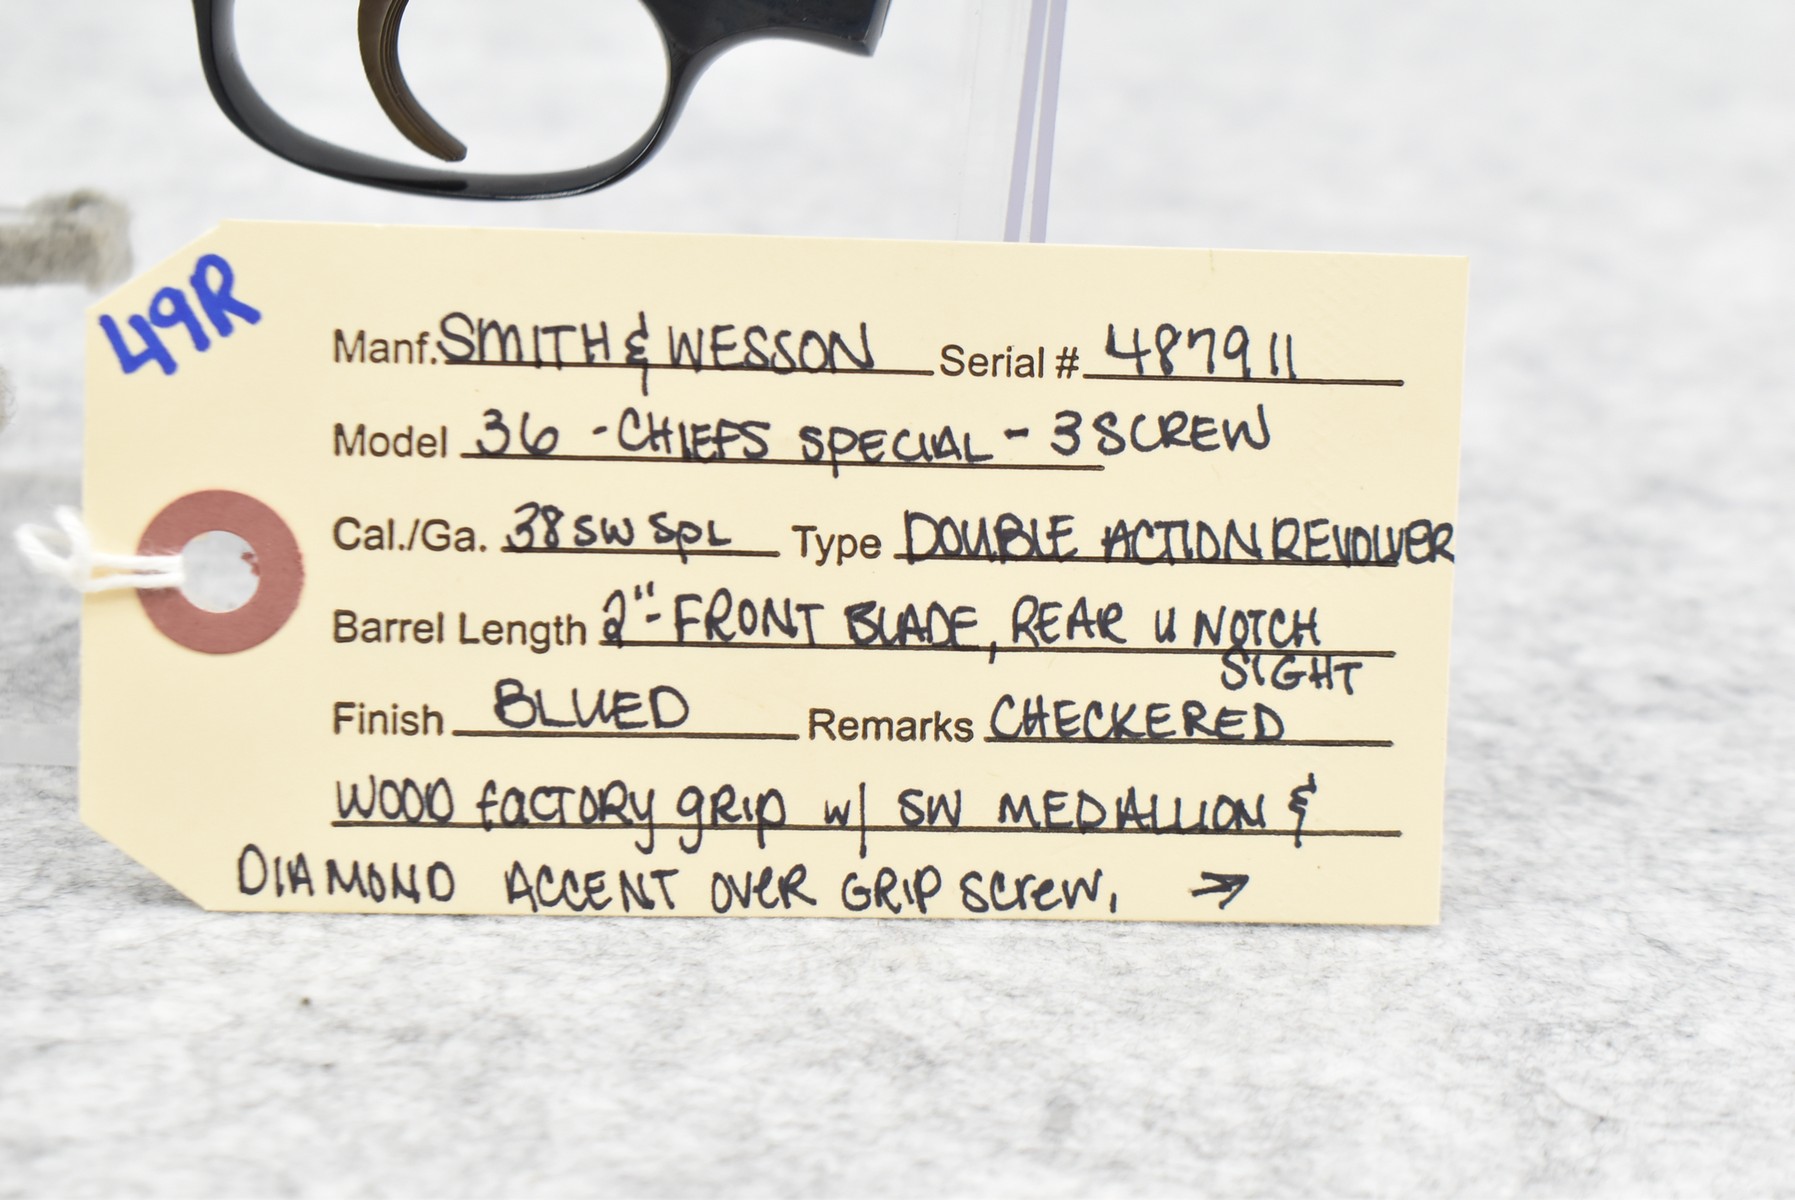 49R
Manf. SMITH & WESSON Serial # 487911
Model 36 - CHIEFS SPECIAL - 3 SCREW
Cal./Ga. 38 SW SPL Type DOUBLE ACTION REVOLVER
Barrel Length 2" - FRONT BLADE, REAR U NOTCH
SIGHT
Finish BLUED Remarks CHECKERED
WOOD FACTORY GRIP w/ SW MEDALLION &
DIAMOND ACCENT OVER GRIP SCREW, →